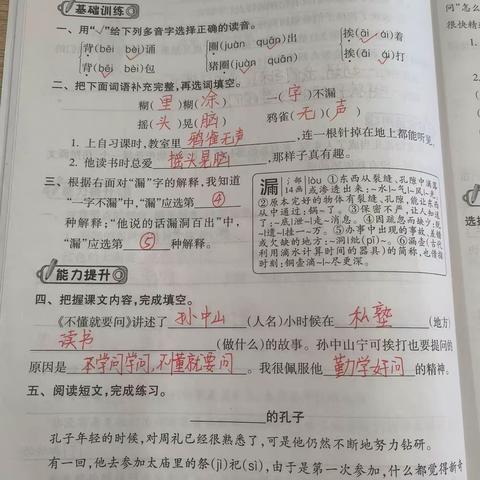 基础训练
一、用“√”给下列多音字选择正确的读音。
背(bēi bèi)诵 圈(juàn quān)出 挨(āi ái)着
背(bēi bèi)包 猪圈(juàn quān) 挨(āi ái)打
二、把下面词语补充完整,再选词填空。
糊(里)糊(涂) 一(字)不漏
摇(头)晃(脑) 鸦雀(无)(声)
1. 上自习课时,教室里 鸦雀无声 ,连一根针掉在地上都能听见。
2. 他读书时总爱 摇头晃脑 ,那样子真有趣。
三、根据右面对“漏”字的解释,我知道
“一字不漏”中,“漏”应选第 ④
种解释;“他说的话漏洞百出”中,
“漏”应选第 ⑤ 种解释。
漏 氵部 14画 lòu ①东西从裂缝、孔隙中滴落
或渗透出来:~水|~气|~风|~
②原本完好的物体有裂缝、孔隙,能让东西
从中通过:锅~了。③保密不严,让人知道
了:~底|泄~|走~消息。④因疏忽而缺少:脱
~|遗~|挂一~万。⑤办事中出现的事故、差错
或欠缺的地方:~洞|纰(pī)~。⑥漏壶(古代
利用滴水计算时间的器具)的简称,也借指
时刻:铜壶滴~|~尽更深。
能力提升
四、把握课文内容,完成填空。
《不懂就要问》讲述了 孙中山 (人名)小时候在 私塾 (地方)
读书 (做什么)的故事。孙中山宁可挨打也要提问的
原因是 本学问学问,不懂就要问 。我很佩服他 勤学好问 的精神。
五、阅读短文,完成练习。
的孔子
孔子年轻的时候,对周礼已经很熟悉了,可是他仍然不断地努力钻研。
有一回,他去参加太庙里的祭(jì)祀(sì),由于是第一次参加,什么都觉得新奇
问“怎么
很快精
2.
选择